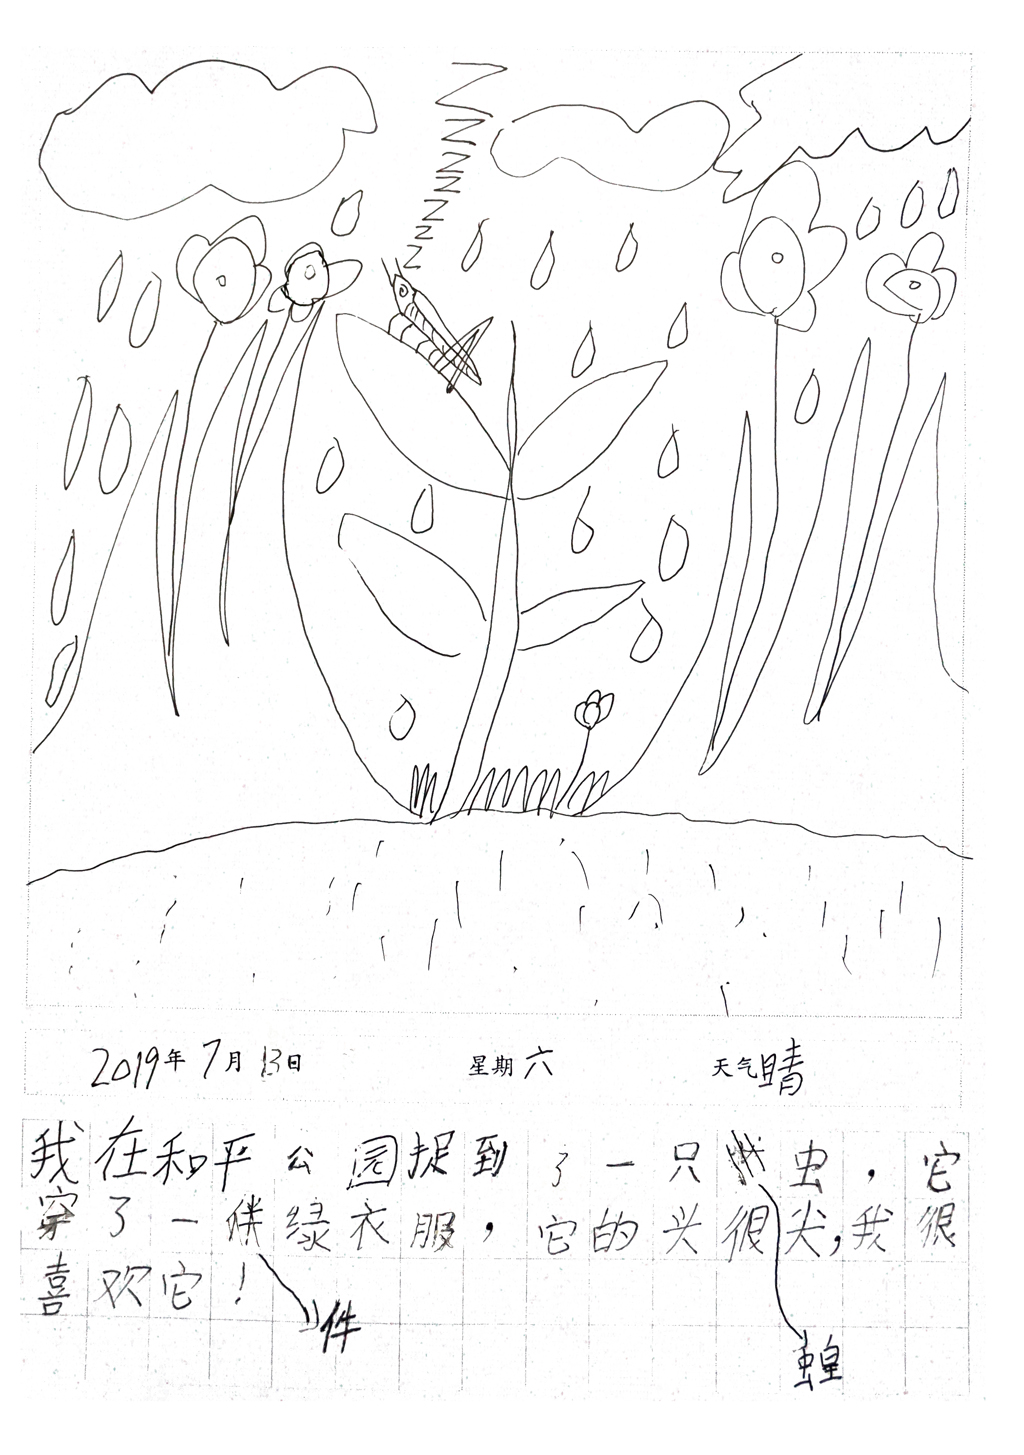 2019年7月13日 星期六 天气晴
我在和平公园捉到了一只虫，它
穿了一绿衣服，它的头很尖，我很
喜欢它！
件
蝗